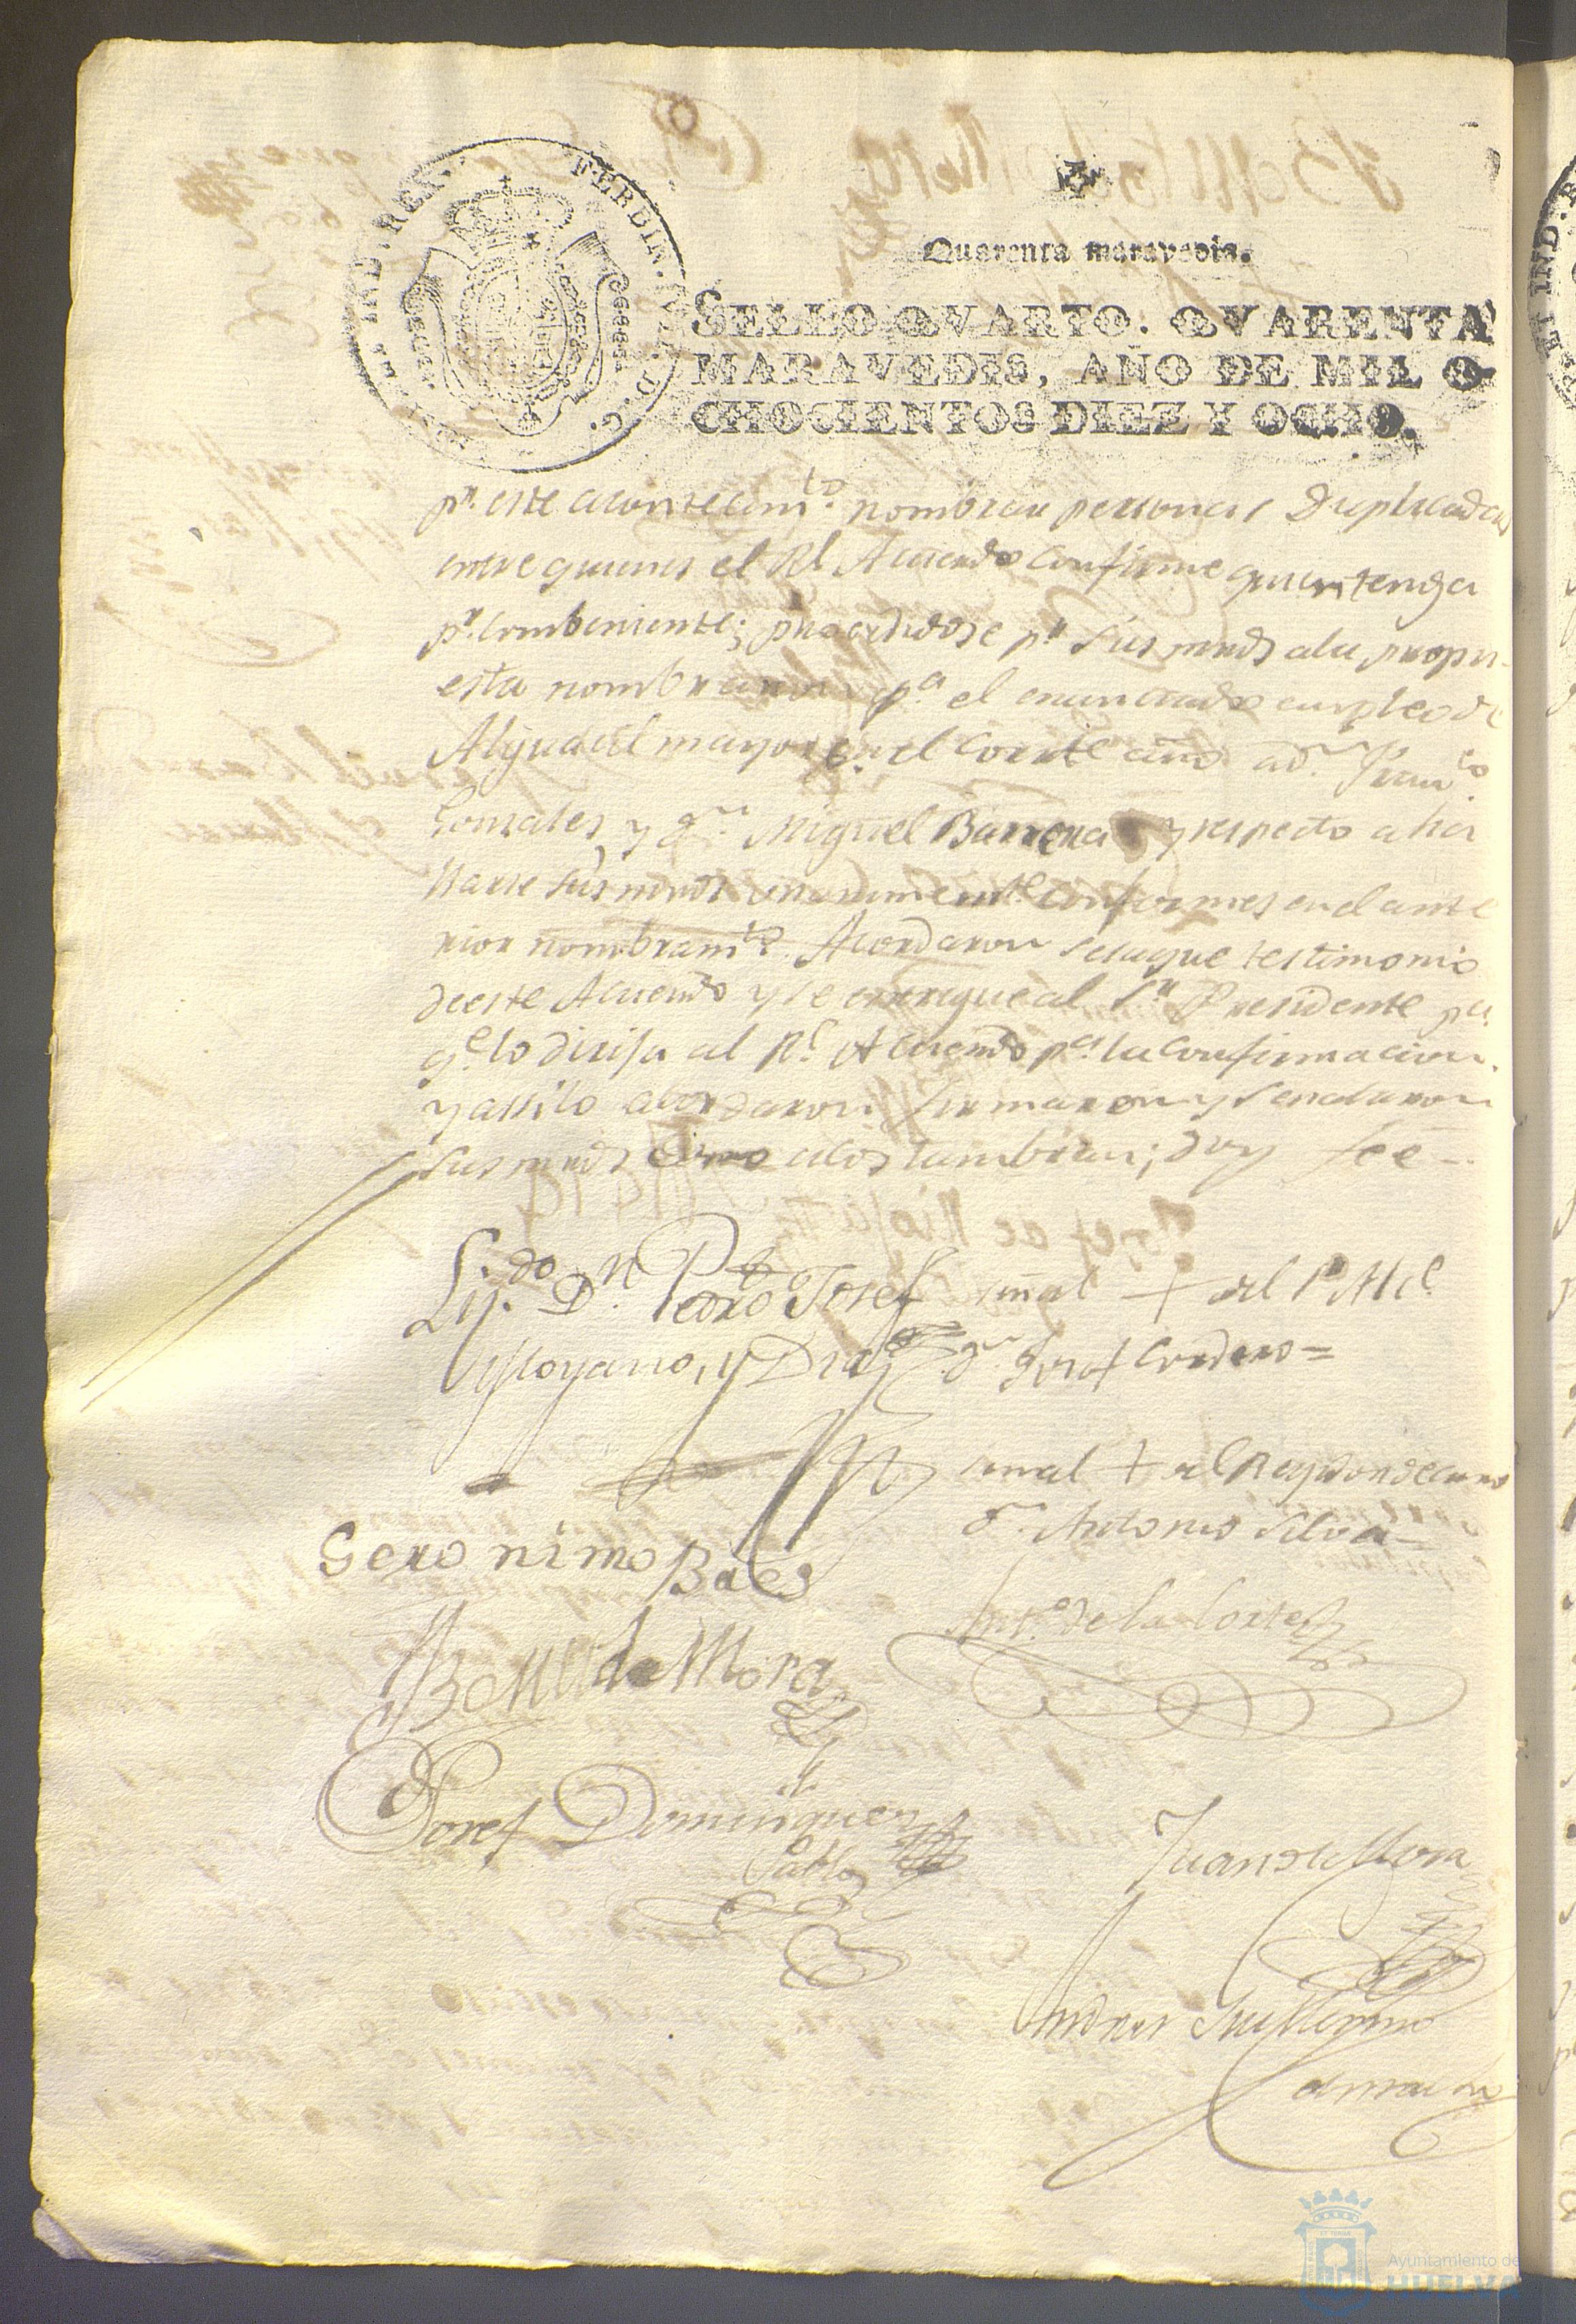 FERDIN. VII. D. G. HISP. ET IND. REX.
Quarenta maravedis.
SELLO QVARTO. QVARENTA
MARAVEDIS, AÑO DE MIL O-
CHOCIENTOS DIEZ Y OCHO.
pr. este acontecimto. nombrar personas Duplicadas
entre quienes el Rl. Acuerdo confirme quien tenga
pr. combeniente; procedidose pr. sus mrds ala propu-
esta nombraron pa. el enunciado empleo de
Alguacil mayor en el corrte año a Dn. Franco.
Gonzales, y Dn. Miguel Barrera y respecto a ha
llarse sus mrds unanimemte. conformes en el ante
rior nombramto. Acordaron se saque testimonio
de este Acuerdo y se entregue al Sr. Presidente pa.
qe. lo dirija al Rl. Acuerdo pa. la confirmacion.
y assi lo acordaron firmaron y señalaron
sus mrds como acostumbran; doy feé =
Lizdo. Dn. Pedro Josef
Moyano, y Diaz
señal + del Sr. Alc.
Dn. Josef Cordero =
señal + del Regidor decano
Dn. Antonio Silva =
Geronimo Báes
Anto. de la Corte
Bentt de Mora
Josef Dominguez
Pablo
Juan de Mora
Andres Guillermo
Camacho
Ayuntamiento de
HUELVA